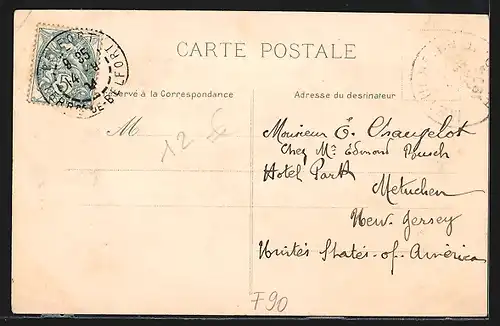 CARTE POSTALE
Réservé à la Correspondance
Adresse du destinateur
M
12
Monsieur E. Changelot
Chez Mr. Edmond Pousch
Hotel Park
Metuchen
New. Jersey
Unites States-of-América
F90